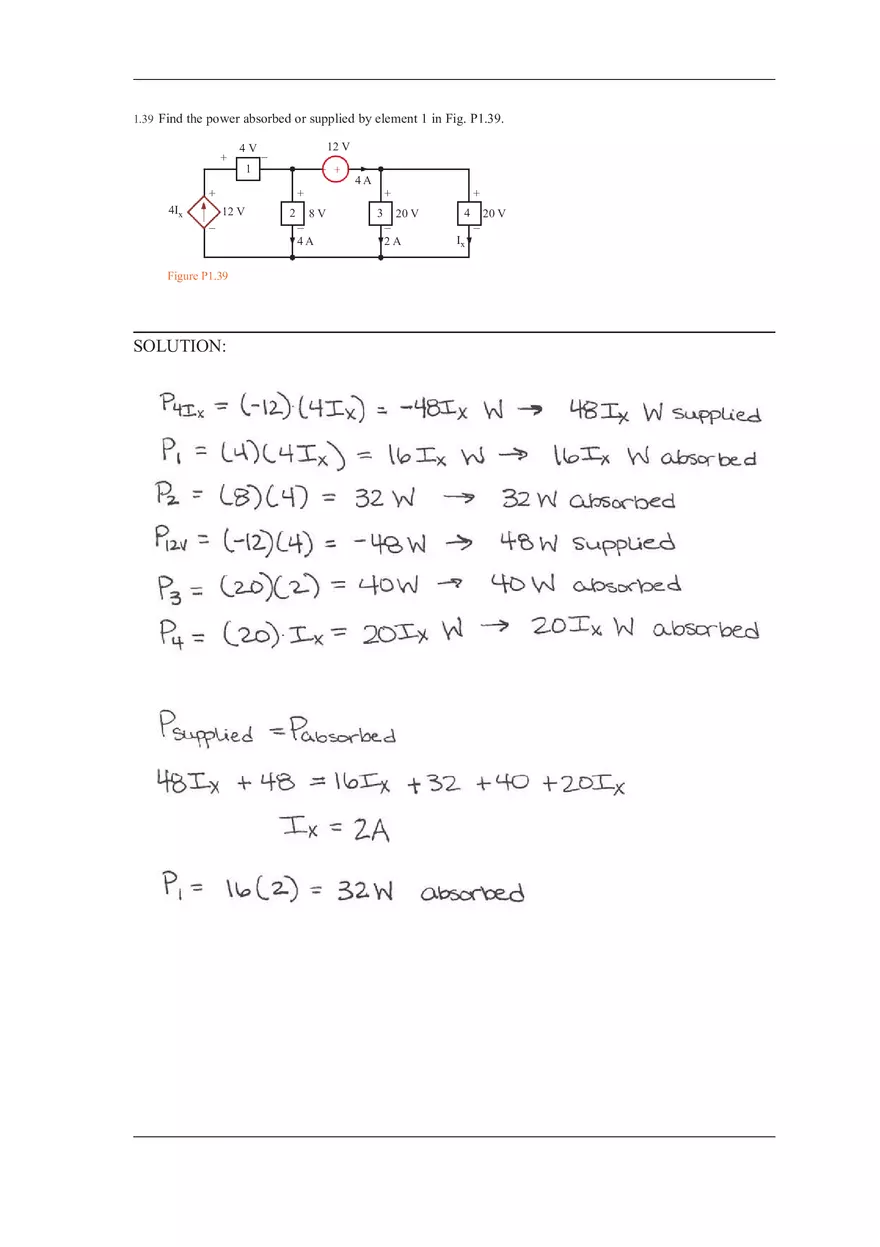 1.39 Find the power absorbed or supplied by element 1 in Fig. P1.39.
4 V 12 V
+ −
1 +
4 A
+ + + +
4Ix 12 V 2 8 V 3 20 V 4 20 V
− − − −
4 A 2 A Ix
Figure P1.39
SOLUTION:
P4Ix = (-12)·(4Ix) = -48Ix W → 48Ix W supplied
P1 = (4)(4Ix) = 16Ix W → 16Ix W absorbed
P2 = (8)(4) = 32 W → 32 W absorbed
P12V = (-12)(4) = -48W → 48W supplied
P3 = (20)(2) = 40W → 40W absorbed
P4 = (20)·Ix = 20Ix W → 20Ix W absorbed
Psupplied = Pabsorbed
48Ix + 48 = 16Ix + 32 + 40 + 20Ix
Ix = 2A
P1 = 16(2) = 32W absorbed